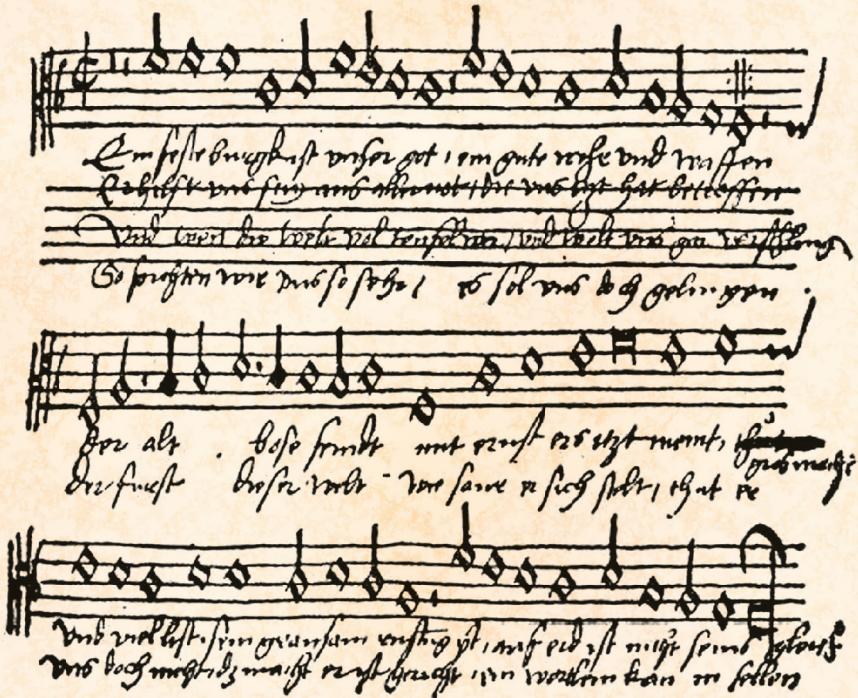 Ein feste burgk ist unser got, ein gute wehr und waffen
Er hilfft uns frey aus aller not, die uns itzt hat betroffen
Und wen die welt vol teufel wer, und wolt uns gar verschling
So furchten wir uns so sehr, es sol uns doch gelingen
der alt bose feindt mit ernst ers itzt meint,
gros macht
der furste dieser welt wie saur er sich stelt, thut er
und viel list sein grausam rustung ist, auf erd ist nicht seins gleich
uns doch nicht dz macht er ist gericht, ein wortlein kan in fellen